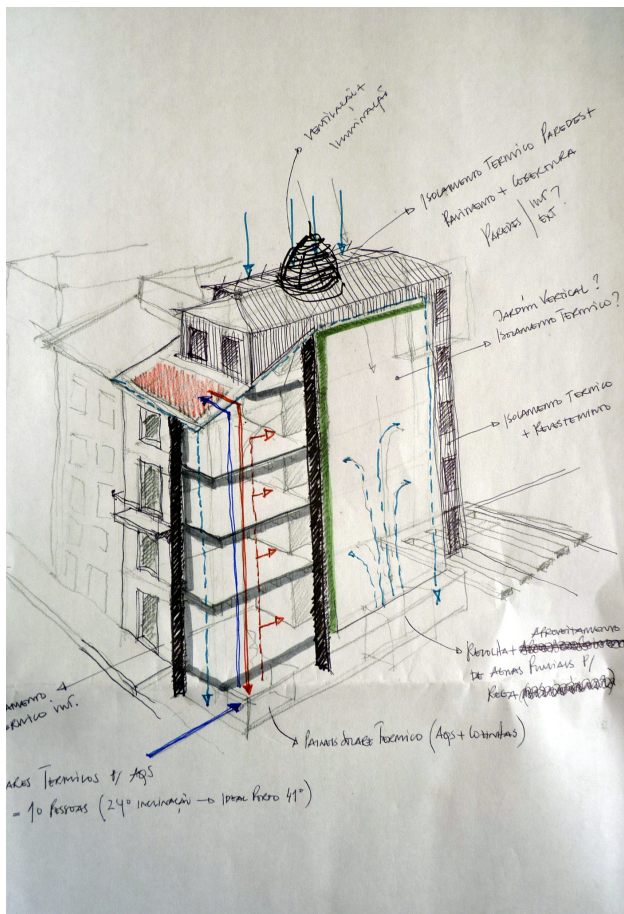 VENTILAÇÃO +
ILUMINAÇÃO
ISOLAMENTO TERMICO PAREDES +
PAVIMENTO + COBERTURA
PAREDES / INT?
EXT.
JARDIM VERTICAL?
ISOLAMENTO TERMICO?
ISOLAMENTO TERMICO
+ REVESTIMENTO
APROVEITAMENTO
RECOLHA +
DE AGUAS PLUVIAIS P/
REGA
PAINEIS SOLARE TERMICO (AQS + COZINHAS)
AMENTO. +
RMICO INT.
ARES TERMICOS P/ AQS
= 10 PESSOAS (24º INCLINAÇÃO → IDEAL PORTO 41º)